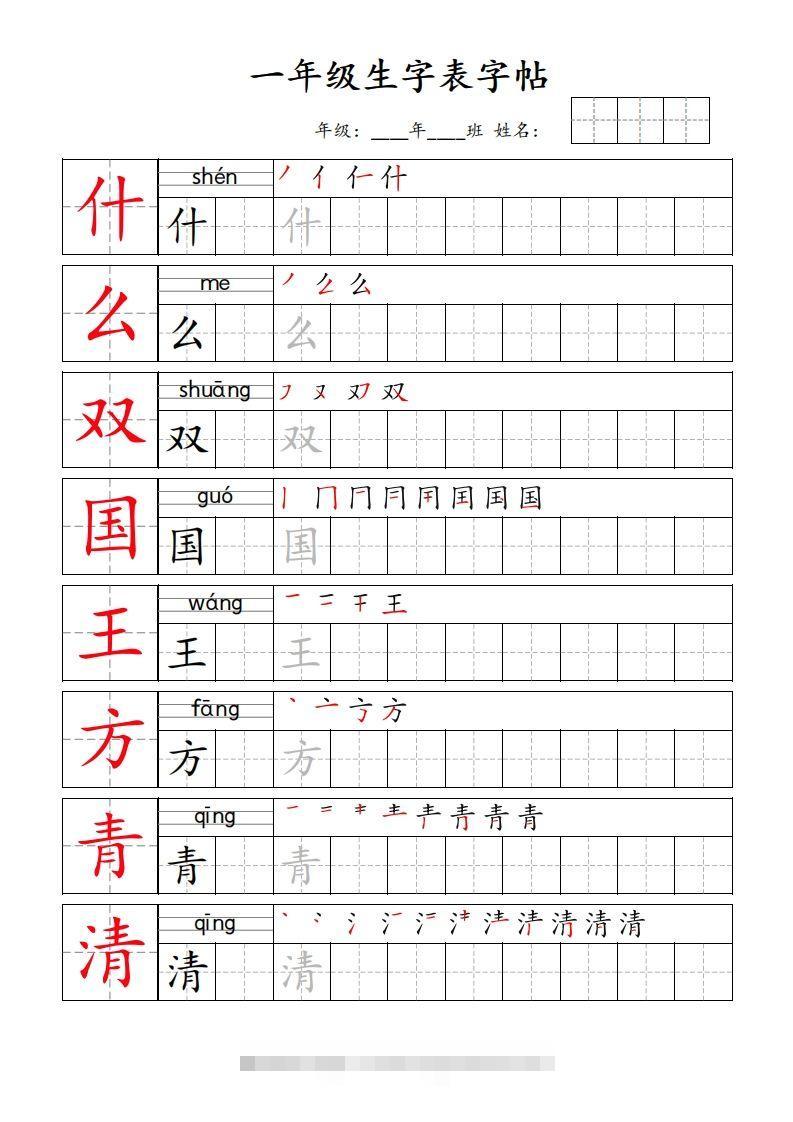 一年级生字表字帖
年级：____年____班 姓名：
什 shén 丿 亻 仁 什
什 什
么 me 丿 么 么
么 么
双 shuāng ㇇ 又 双 双
双 双
国 guó 丨 冂 国
国 国
王 wáng 一 二 干 王
王 王
方 fāng 丶 亠 方
方 方
青 qīng 一 二 青
青 青
清 qīng 丶 冫 氵 清
清 清